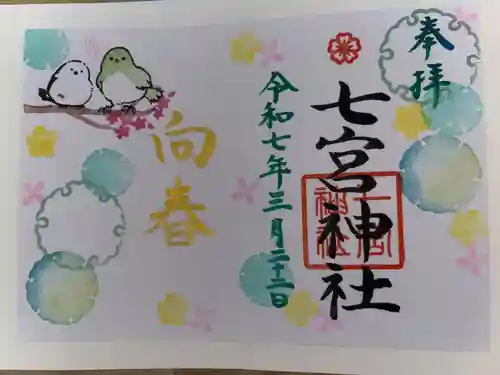 奉拝
七宮神社
令和七年三月二十二日
向春